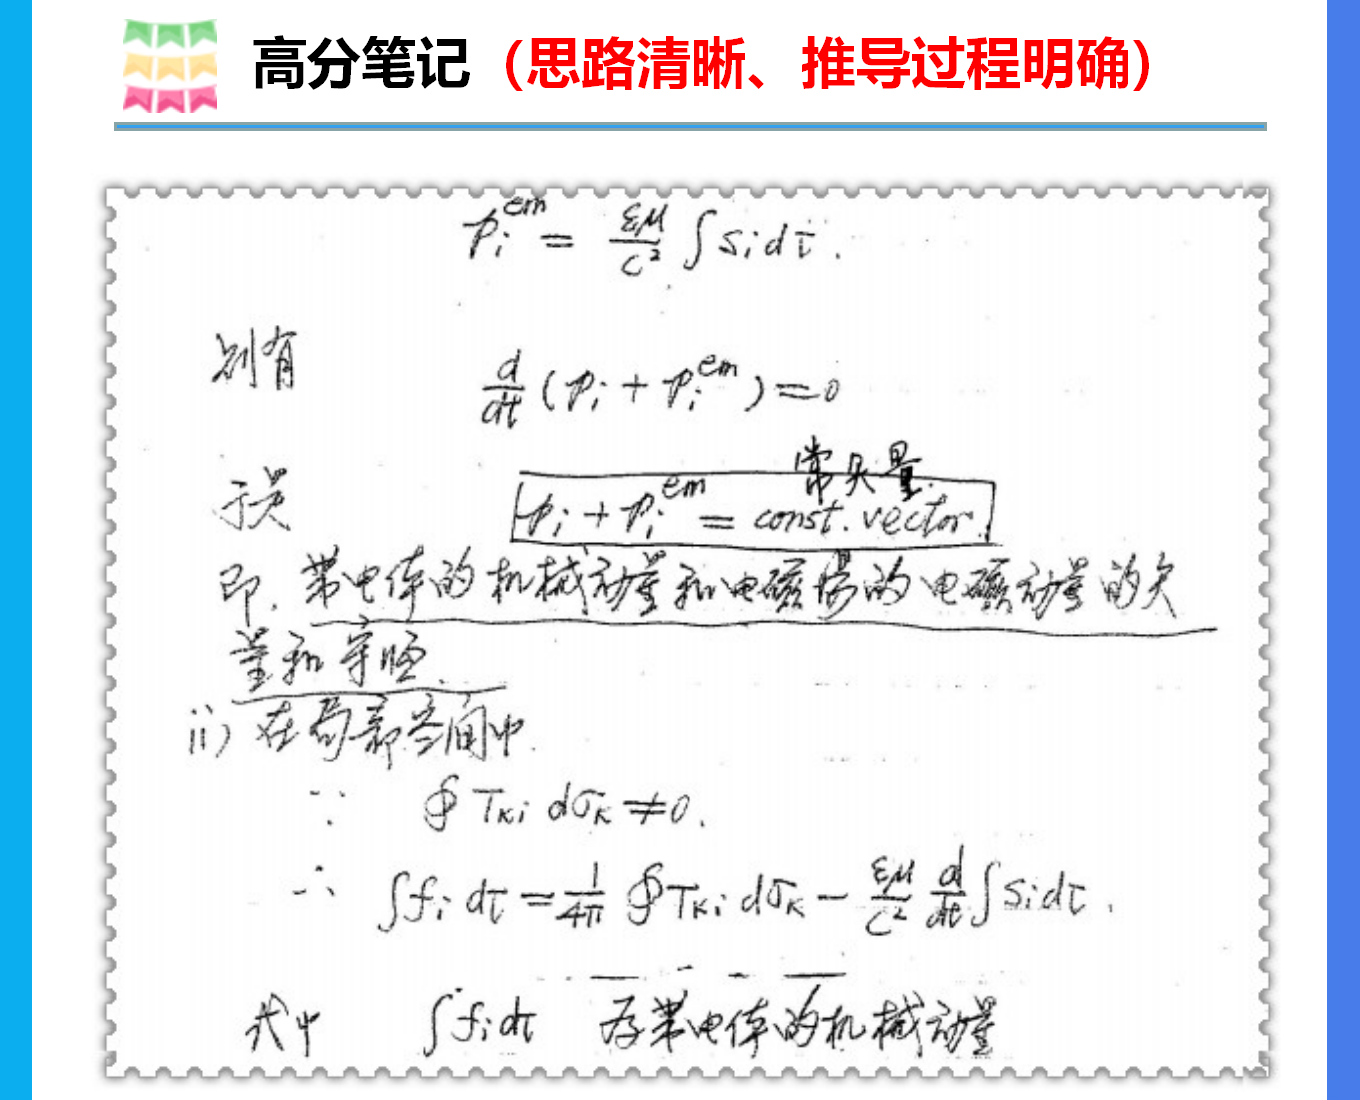 高分笔记（思路清晰、推导过程明确）
p_i^{em} = \frac{εμ}{c^2} ∫ S_i dτ.
则有
\frac{d}{dt} (p_i + p_i^{em}) = 0
常矢量
于是
p_i + p_i^{em} = const. vector.
即. 带电体的机械动量和电磁场的电磁动量的矢
量和守恒.
ii) 在局部空间中.
∵ ∮ T_{κi} dσ_κ ≠ 0.
∴ ∫ f_i dτ = \frac{1}{4π} ∮ T_{κi} dσ_κ - \frac{εμ}{c^2} \frac{d}{dt} ∫ S_i dτ.
式中 ∫ f_i dτ 为带电体的机械动量